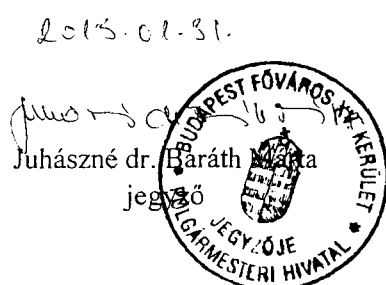 2013.01.31.
Juhászné dr. Baráth Márta
jegyző
BUDAPEST FŐVÁROS KERÜLET
POLGÁRMESTERI HIVATAL
JEGYZŐJE